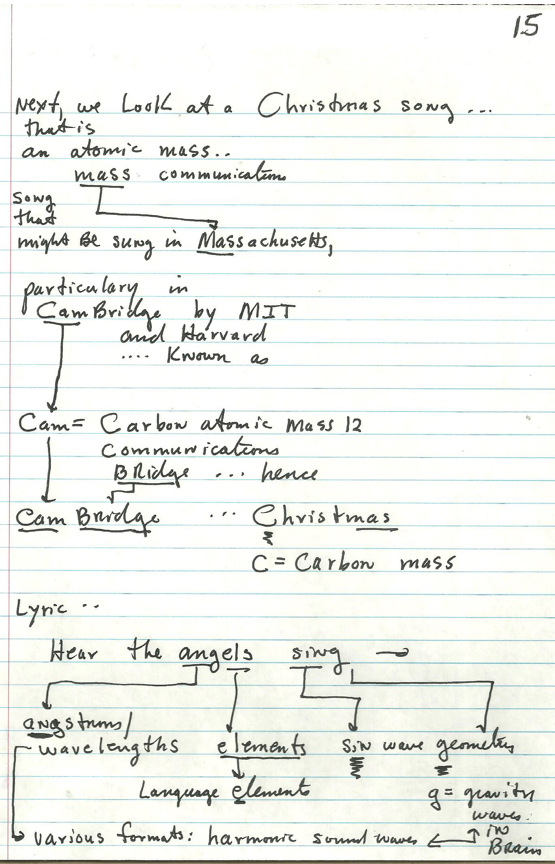 15
Next, we Look at a Christmas song ...
that is
an atomic mass..
mass communications
song
that
might Be sung in Massachusetts,
particulary in
CamBridge by MIT
and Harvard
.... Known as
Cam = Carbon atomic mass 12
communications
BRidge ... hence
Cam Bridge ... Christmas
C = Carbon mass
Lyric ..
Hear the angels sing
angstrums/
wavelengths elements sin wave geometry
Language elements g = gravity
waves
in
Brain
various formats: harmonic sound waves